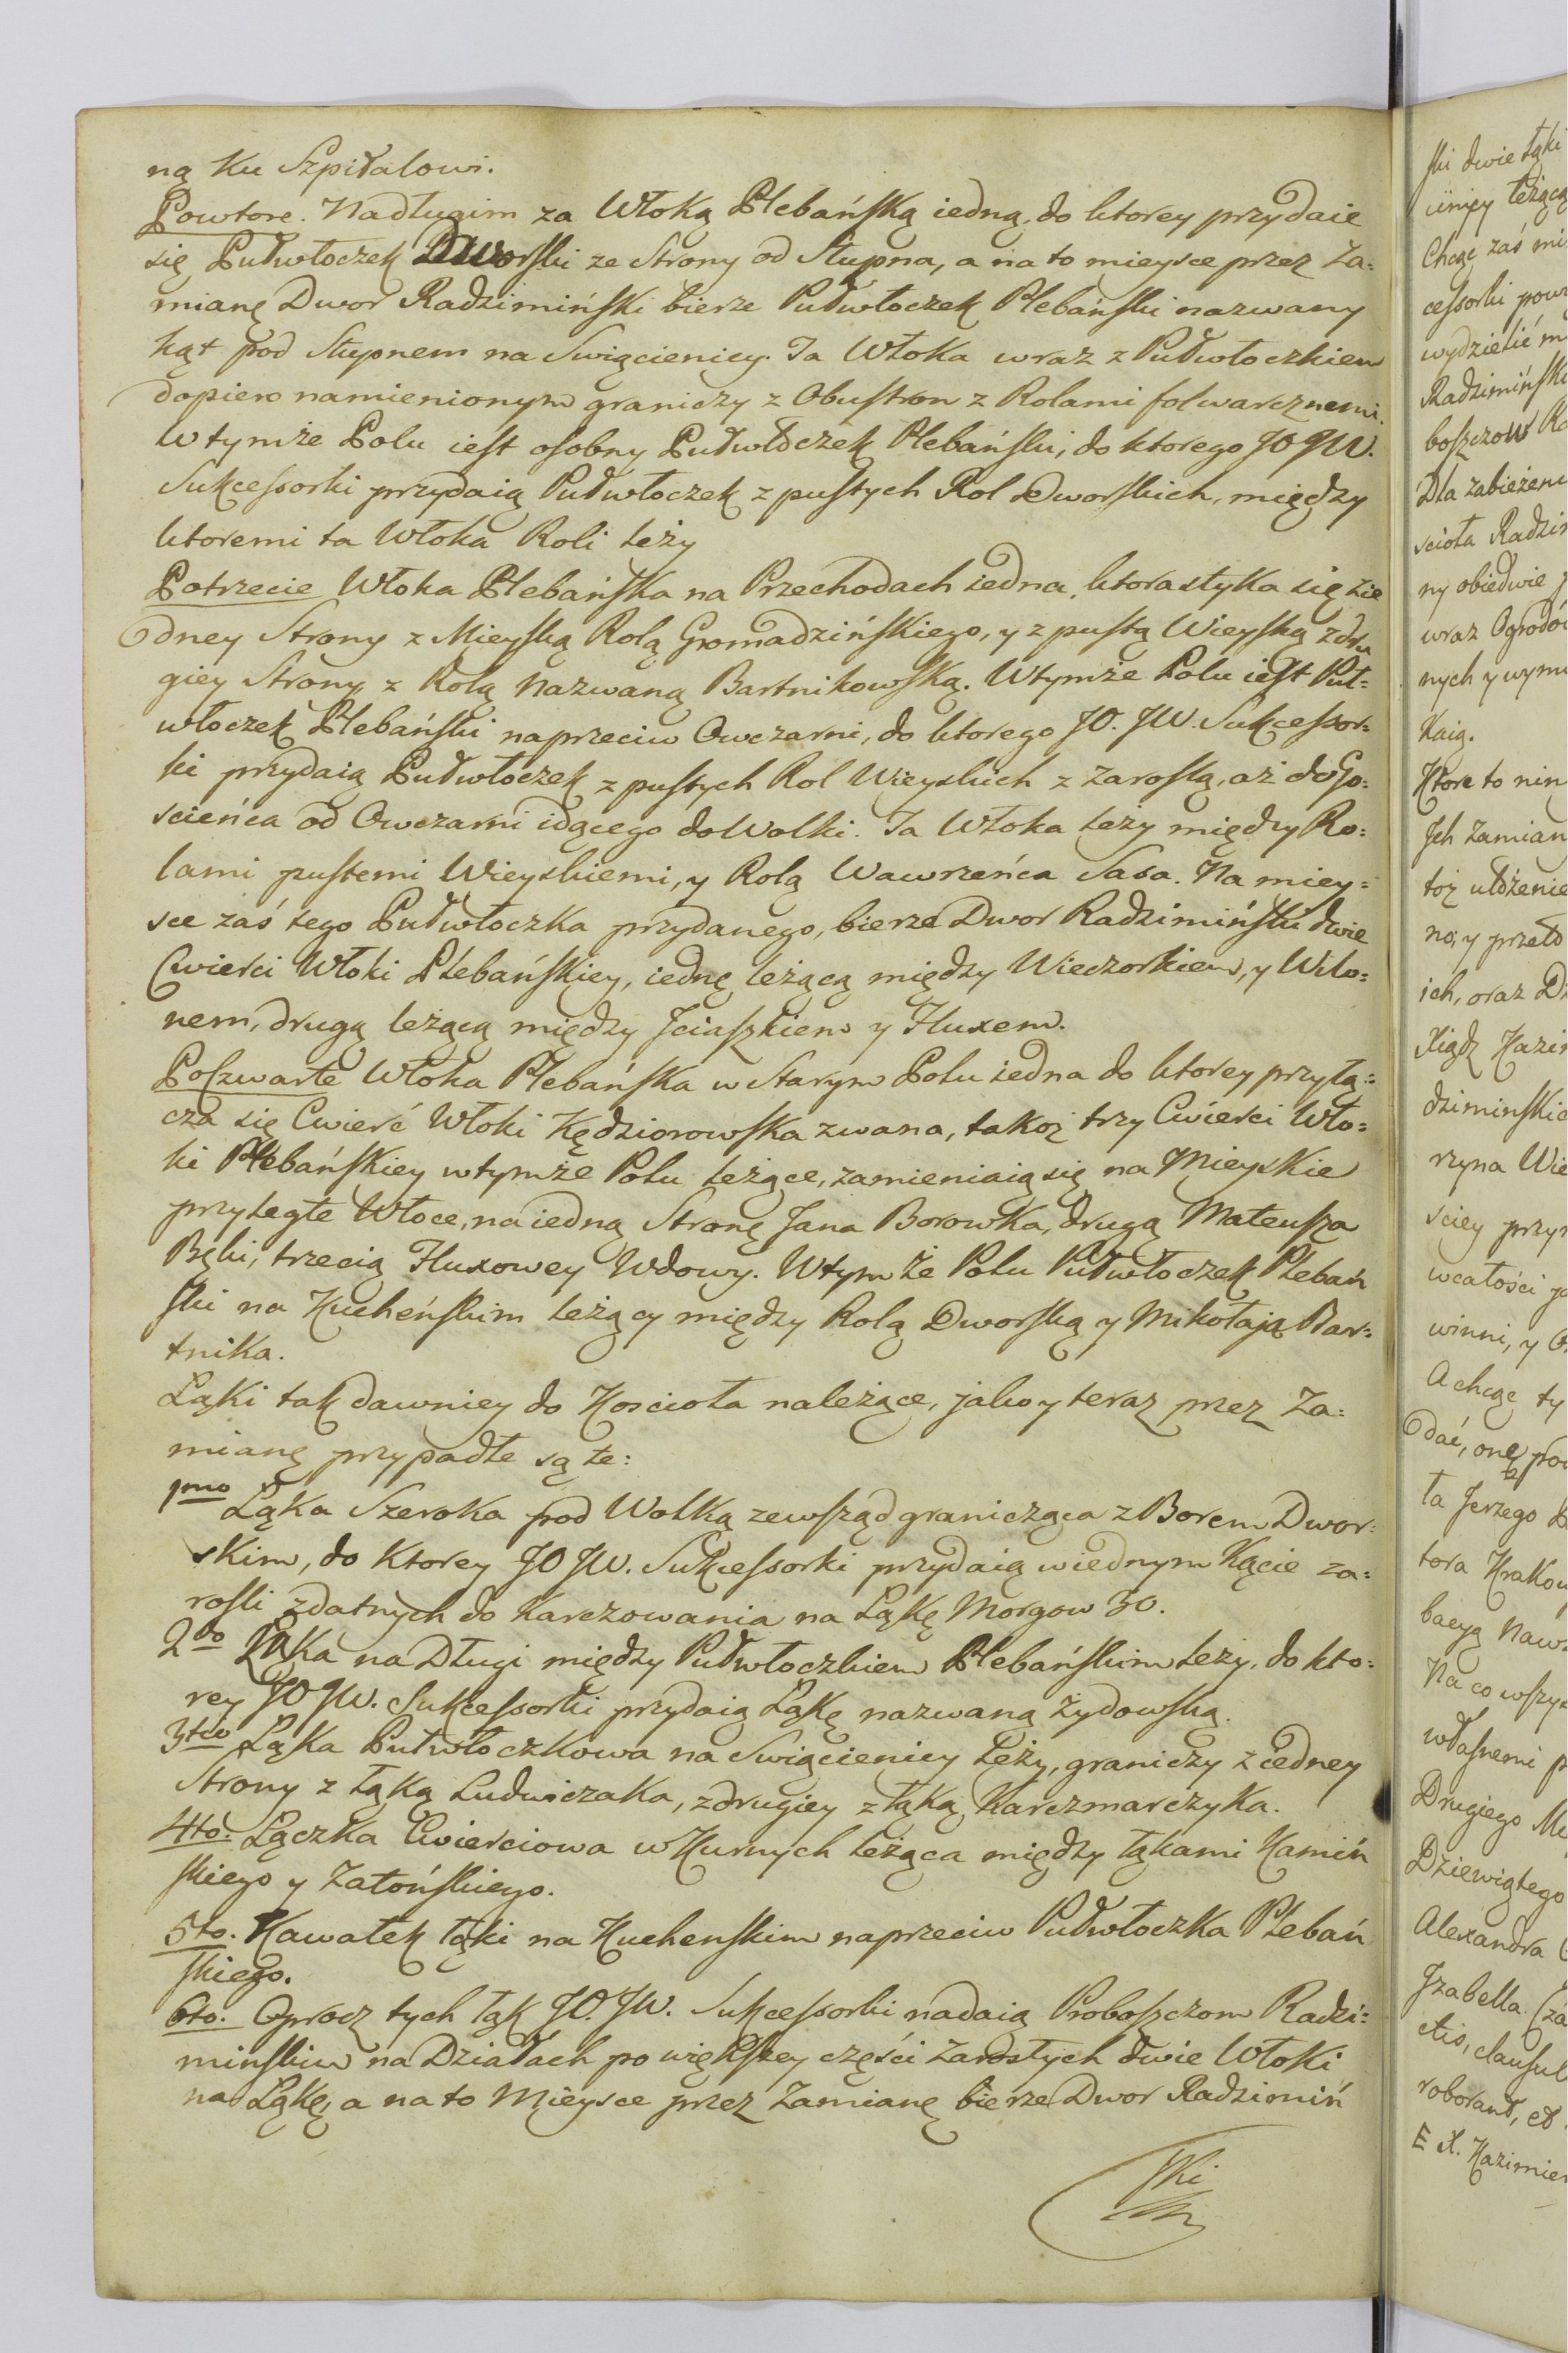 ną Ku Szpitalowi.
Powtore. Nadługim za Włoką Plebańską iedną, do ktorey przydaie
się Pułwłoczek Dworski ze Strony od Słupna, a na to mieysce przez Za=
mianę Dwor Radzimiński bierze Pułwłoczek Plebański nazwany
kąt pod Słupnem na Swięcieniey. Ta Włoka wraz z Pułwłoczkiem
dopiero namienionym graniczy z Obustron z Rolami folwarcznemi.
w tymże Polu iest osobny Pułwłoczek Plebański, do ktorego JO JW.
Sukcessorki przydaią Pułwłoczek z pustych Rol Dworskich, między
ktoremi ta Włoka Roli leży
Potrzecie Włoka Plebańska na Przechodach iedna, ktora styka się zie
dney Strony z Mieyską Rolą Gromadzińskiego, y z pustą Wieyską z dru
giey Strony z Rolą nazwaną Bartnikowską. Wtymże Polu iest Puł=
włoczek Plebański naprzeciw Owczarni, do ktorego JO. JW. Sukcessor=
ki przydaią Pułwłoczek z pustych Rol Wieyskich z Zarosłą, aż do Go=
scieńca od Owczarni idącego do Wolki. Ta Włoka leży między Ro=
lami pustemi Wieyskiemi, y Rolą Wawrzeńca Sasa. Na miey=
sce zaś tego Pułwłoczka przydanego, bierze Dwor Radzimiński dwie
Cwierci Włoki Plebańskiey, iednę leżącą między Wieczorkiem, y Wilo=
nem, drugą leżącą między Jciaszkiem y Fluxem.
Poczwarte Włoka Plebańska w Starym Polu iedna do ktorey przyłą=
cza się Cwierć Włoki Kędziorowska zwana, takoż trzy Cwierci Wło=
ki Plebańskiey w tymże Polu leżące, zamieniaią się na Mieyskie
przyległe Włoce, na iedną Stronę Jana Borowka, drugą Mateusza
Bęki, trzecią Fluxowey Wdowy. Wtymże Polu Pułwłoczek Plebań
ski na Kucheńskim leżący między Rolą Dworską y Mikołają Bar=
tnika.
Łąki tak dawniey do Kosciola należące, jako y teraz przez Za=
mianę przypadłe są te:
1mo Łąka Szeroka pod Wolką zewsząd granicząca z Borem Dwor=
skim, do Ktorey JO JW. Sukcessorki przydaią wiednym Kącie za=
rosli zdatnych do Karczowania na Łąkę Morgow 30.
2do Łąka na Długi między Pułwłoczkiem Plebańskim leży, do kto=
rey JO JW. Sukcessorki przydaią Łąkę nazwaną Żydowską.
3tio Łąka Pułwłoczkowa na Swięcieniey Leży, graniczy z iedney
Strony z Łąką Ludwiczaka, z drugiey z Łąką Karczmarczyka.
4to. Łączka Cwierciowa w Kurnych leżąca między Łąkami Kamiń
skiego y Zatońskiego.
5to. Kawałek Łąki na Kuchenskim naprzeciw Pułwłoczka Plebań
skiego.
6to. Oprocz tych Łąk JO. JW. Sukcessorki nadaią Proboszczom Radzi=
minskim na Działach po większey części Zarosłych dwie Włoki
na Łąkę, a na to Mieysce przez Zamianę bierze Dwor Radzimiń
ski
ski dwie łąki
Chcąc zaś
cessorki
wydzielić
Radzimiński
boszczow
Dla zabieżeni
sciola Radzi
ny obiedwie
wraz Ogrodo
nych y wymi
Kaią.
Ktore to nin
Jch Zamian
toż ułożenie
no, y przeto
ich, oraz
Xiądz Kazi
dziminskie
sciey przy
wcałości
winni, y
A chcąc ty
dać, onę
ta Jerzego
tora Krakow
Na co wszys
własnemi
Drugiego
Dziewiątego
Alexandra
Jzabella
ctis, clausul
roborant, et
E X. Kazimier